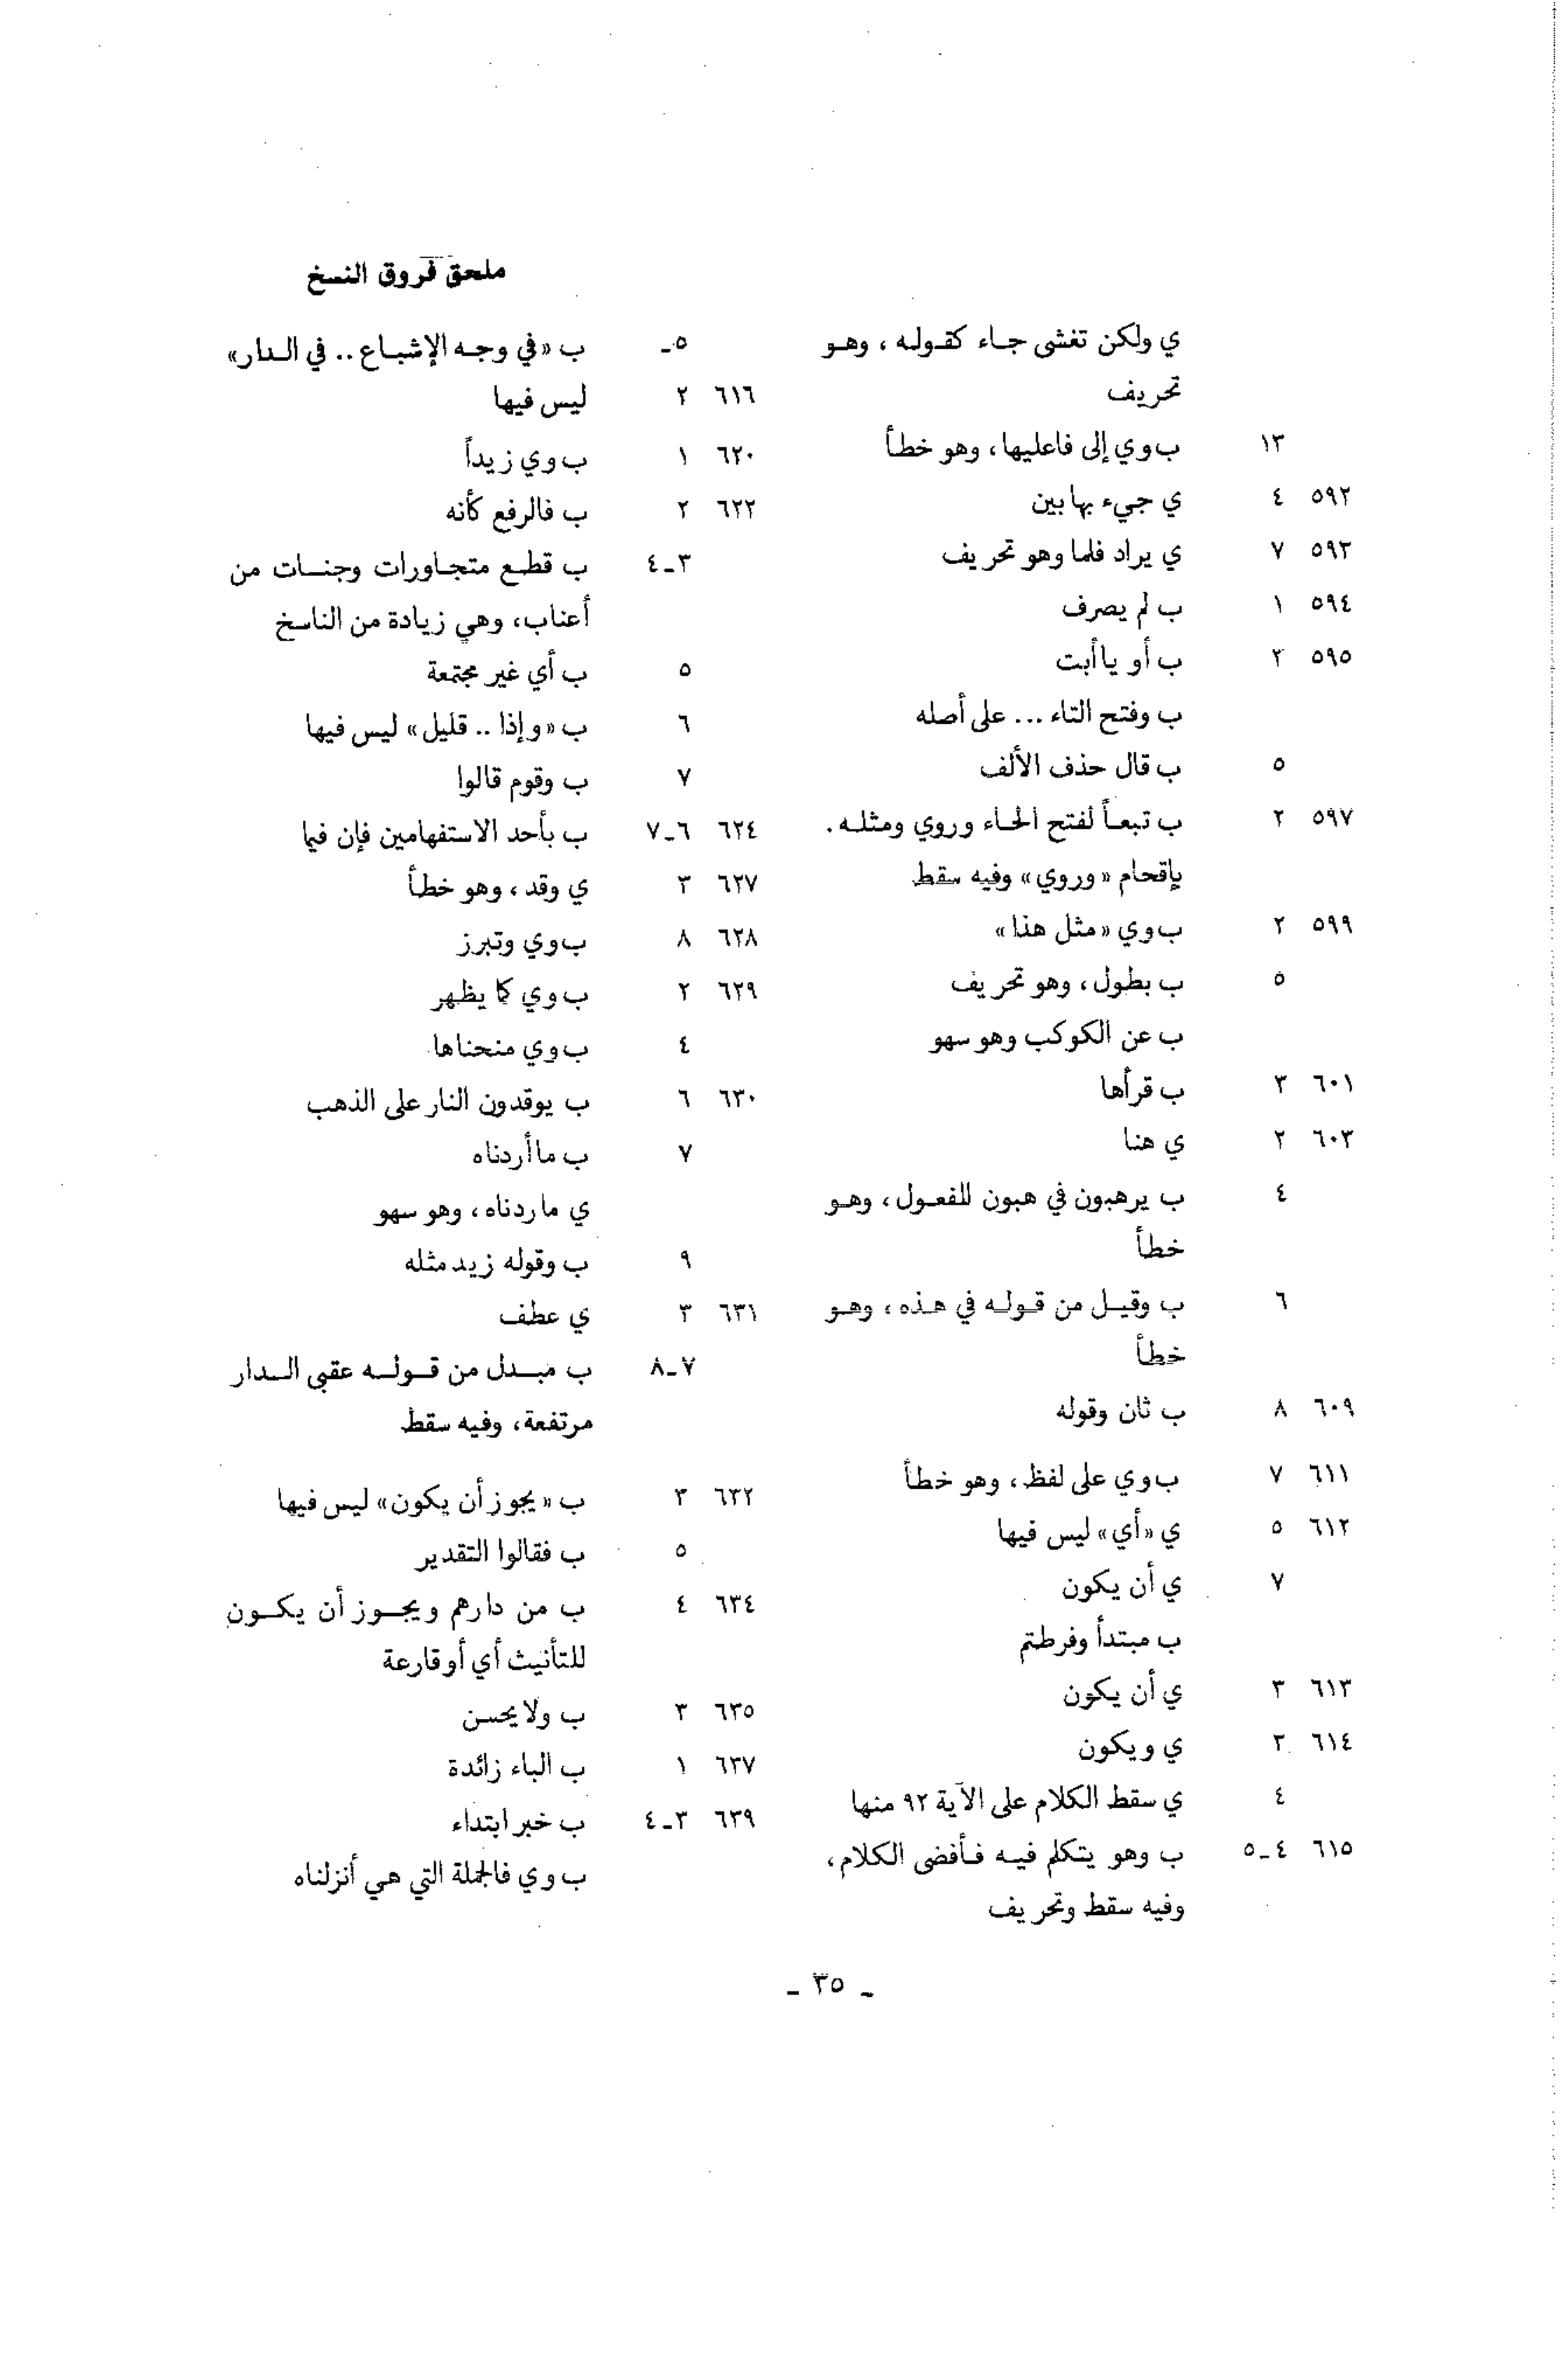 ملحق فروق النسخ
ي ولكن تغشى جاء كقوله ، وهو
تحريف
١٣ ب وي إلى فاعليها ، وهو خطأ
٥٩٢ ٤ ي جيء بها بين
٥٩٣ ٧ ي يراد فلما وهو تحريف
٥٩٤ ١ ب لم يصرف
٥٩٥ ٢ ب أو ياأبت
ب وفتح التاء ... على أصله
٥ ب قال حذف الألف
٥٩٧ ٢ ب تبعاً لفتح الحاء وروي ومثله .
بإقحام « وروي » وفيه سقط
٥٩٩ ٢ ب وي « مثل هذا »
٥ ب بطول ، وهو تحريف
ب عن الكوكب وهو سهو
٦٠١ ٣ ب قرأها
٦٠٣ ٢ ي هنا
٤ ب يرهبون في هبون للفعول ، وهو
خطأ
٦ ب وقيل من قوله في هذه ، وهو
خطأ
٦٠٩ ٨ ب ثان وقوله
٦١١ ٧ ب وي على لفظ ، وهو خطأ
٦١٢ ٥ ي « أي » ليس فيها
٧ ي أن يكون
ب مبتدأ وفرطتم
٦١٣ ٣ ي أن يكون
٦١٤ ٢ ي ويكون
٤ ي سقط الكلام على الآية ٩٢ منها
٦١٥ ٤ـ٥ ب وهو يتكلم فيه فأفضى الكلام ،
وفيه سقط وتحريف
٥ـ ب « في وجه الإشباع .. في الدار »
٦١٦ ٢ ليس فيها
٦٢٠ ١ ب وي زيداً
٦٢٢ ٢ ب فالرفع كأنه
٣ـ٤ ب قطع متجاورات وجنات من
أعناب ، وهي زيادة من الناسخ
٥ ب أي غير مجتمعة
٦ ب « وإذا .. قليل » ليس فيها
٧ ب وقوم قالوا
٦٢٤ ٦ـ٧ ب بأحد الاستفهامين فإن فيا
٦٢٧ ٣ ي وقد ، وهو خطأ
٦٢٨ ٨ ب وي وتبرز
٦٢٩ ٢ ب وي كما يظهر
٤ ب وي منحناها
٦٣٠ ٦ ب يوقدون النار على الذهب
٧ ب ماأردناه
ي ماردناه ، وهو سهو
٩ ب وقوله زيد مثله
٦٣١ ٣ ي عطف
٧ـ٨ ب مبدل من قوله عقبى الدار
مرتفعة ، وفيه سقط
٦٣٢ ٣ ب « يجوز أن يكون » ليس فيها
٥ ب فقالوا التقدير
٦٣٤ ٤ ب من دارهم ويجوز أن يكون
للتأنيث أي أو قارعة
٦٣٥ ٣ ب ولا يحسن
٦٣٧ ١ ب الباء زائدة
٦٣٩ ٣ـ٤ ب خبر ابتداء
ب وي فالجملة التي هي أنزلناه
ـ ٣٥ ـ